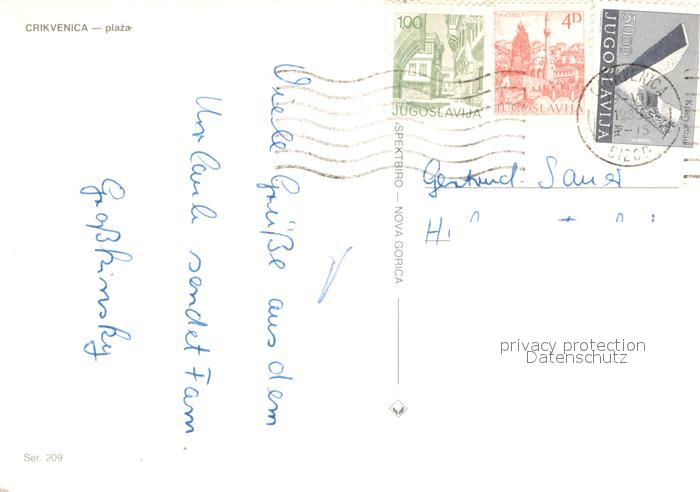 CRIKVENICA — plaža
Viele Grüße aus dem
Urlaub sendet Fam.
Ser. 209
SPEKTBIRO — NOVA GORICA
100
JUGOSLAVIJA
4D
JUGOSLAVIJA
50.00
JUGOSLAVIJA
Gertrud Sauer
privacy protection
Datenschutz